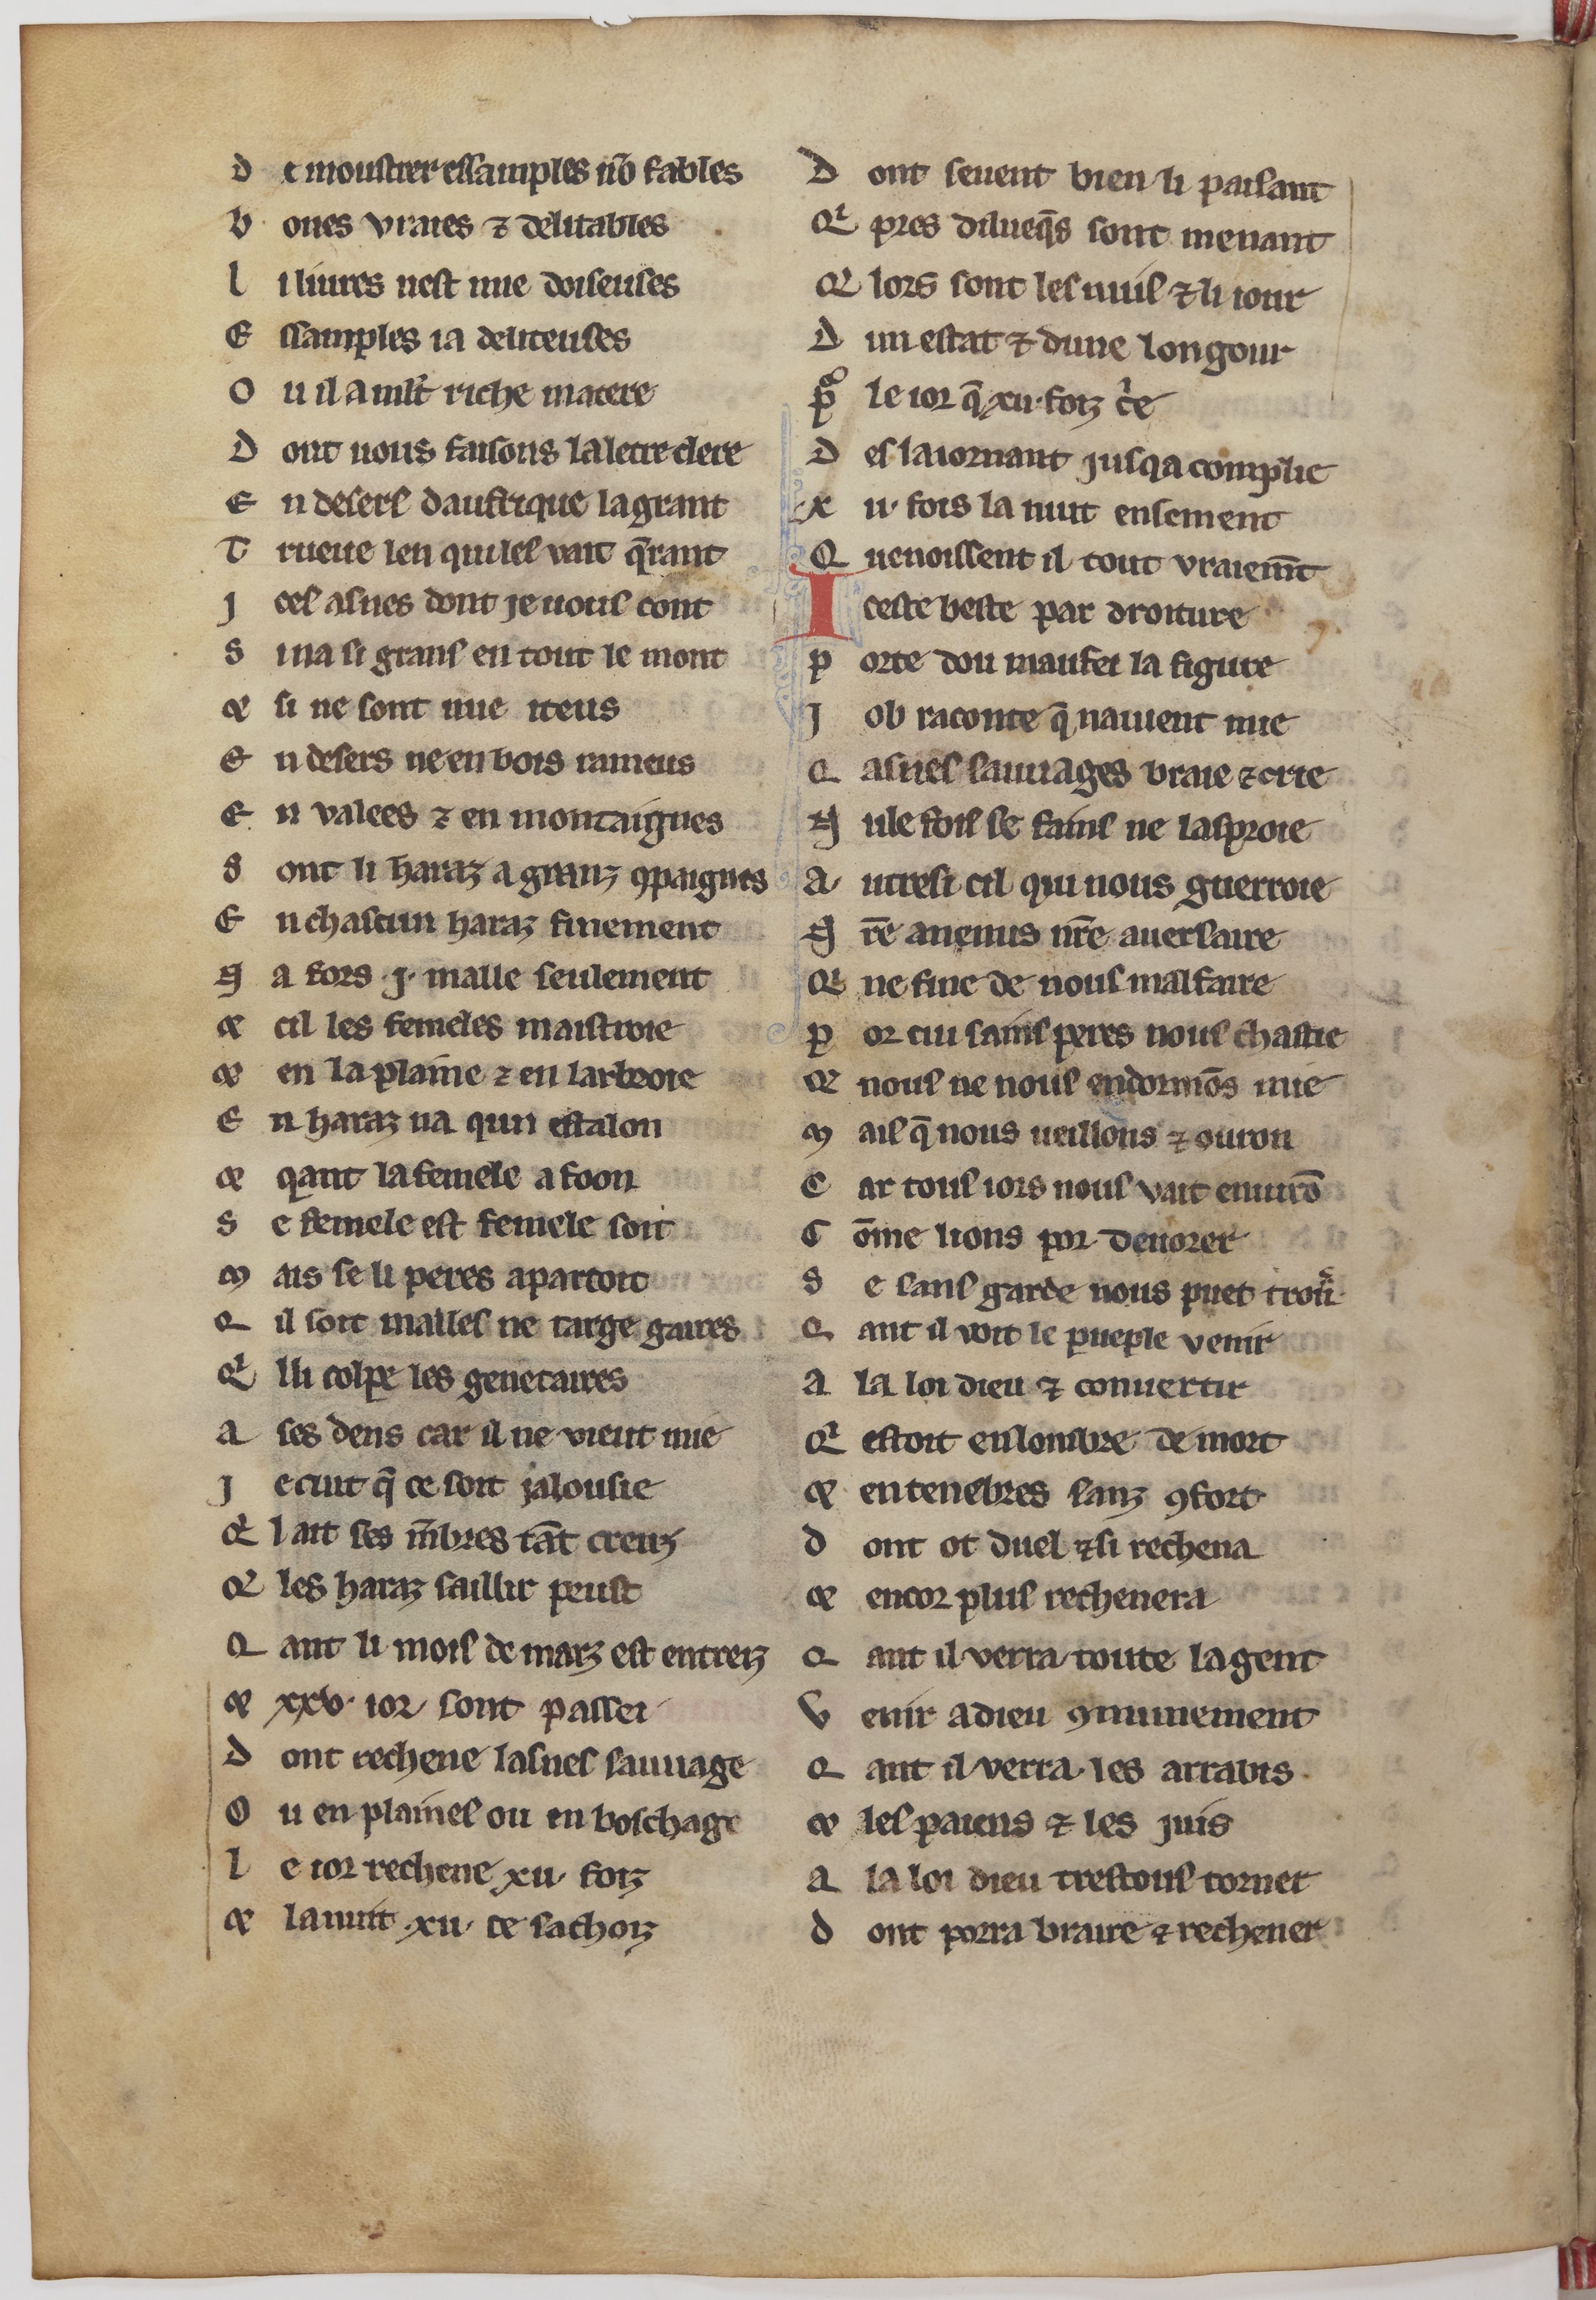 d e moustrer essamples nõ fables
b ones vraies ⁊ delitables
l i liures nest mie doiseuses
E ssamples i a deliteuses
O u il a mlt̃ riche matere
D ont nous faisons la lettre clere
E n desers daufrique la grant
T rueue len qui les vait q̃rant
J cel asnes dont je uous cont
S ina si grans en tout le mont
⁊ si ne sont mie iteus
E n desers ne en bois rameus
E n valees ⁊ en montaignes
S ont li haraz a granz ꝯpaignes
E n chascun haraz finement
N a fors .j. malle seulement
⁊ cil les femeles maistroie
⁊ en la plaine ⁊ en larbroie
E n haraz na qun estalon
⁊ qant la femele a foon
S e femele est femele soit
M ais se li peres apartoit
Q il soit malles ne targe gaires
Q̾ lli colpe les genetaires
A ses dens car il ne vieut mie
J e cuit q̃ ce soit jalousie
Q̾ l ait ses m̃bres tãt creuz
Q̾ les haraz saillir peust
Q ant li mois de marz est entreiz
⁊ xxv. ior sont passei
D ont rechene lasnes sauuage
O u en plaines ou en boschage
L e ior rechene xii. foiz
⁊ la nuit .xii. ce sachoiz
D ont seuent bien li paisant
Q̾ pres dilueq̃s sont menant
Q̾ lors sont les nuis ⁊ li iour
D un estat ⁊ dune longour
P̲ le ior q̃ xii. foiz c̃e
D es laiornant jusqa complie
X ii. fois la nuit ensement
Q uenoissent il tout vraiem̃t
I ceste beste par droiture
P orte dou maufei la figure
J ob raconte q̃ nauient mie
Q asnes sauuages braie ⁊ crie
N ule fois se fains ne lasproie
A utresi cil qui nous guerroie
N r̃e anemis nr̃e auersaire
Q̾ ne fine de nous malfaire
P or cui sains peres nous chastie
Q̾ nous ne nous endormõs mie
M ais q̃ nous ueillons ⁊ ouron
C ar tous iors nous vait enuirõ
C õme lions por deuorer
S e sans garde nous puet trou͛
Q ant il voit le pueple venir
A la loi dieu ⁊ conuertir
Q̾ estoit en lombre de mort
⁊ en tenebres sanz ꝯfort
D ont ot duel ⁊ si rechena
⁊ encor plus rechenera
Q ant il verra toute la gent
V enir a dieu ꝯmunement
Q ant il verra les arrabis
⁊ les paiens ⁊ les juis
A la loi dieu trestous torner
D ont porra braire ⁊ rechener